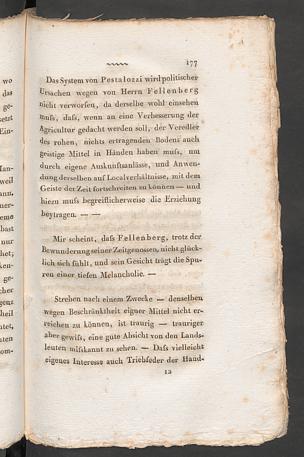 177
Das System von Pestalozzi wird politischer
Ursachen wegen von Herrn Fellenberg
nicht verworfen, da derselbe wohl einsehen
muſs, daſs, wenn an eine Verbesserung der
Agricultur gedacht werden soll, der Veredler
des rohen, nichts ertragenden Bodens auch
geistige Mittel in Händen haben muſs, um
durch eigene Auskunftsanlässe, und Anwen-
dung derselben auf Localverhältnisse, mit dem
Geiste der Zeit fortschreiten zu können — und
hiezu muſs begreiflicherweise die Erziehung
beytragen. — —
Mir scheint, daſs Fellenberg, trotz der
Bewunderung seiner Zeitgenossen, nicht glück-
lich sich fühlt, und sein Gesicht trägt die Spu-
ren einer tiefen Melancholie. —
Streben nach einem Zwecke — denselben
wegen Beschränktheit eigner Mittel nicht er-
reichen zu können, ist traurig — trauriger
aber gewiſs, eine gute Absicht von den Lands-
leuten miſskannt zu sehen. — Daſs vielleicht
eigenes Interesse auch Triebfeder der Hand-
12